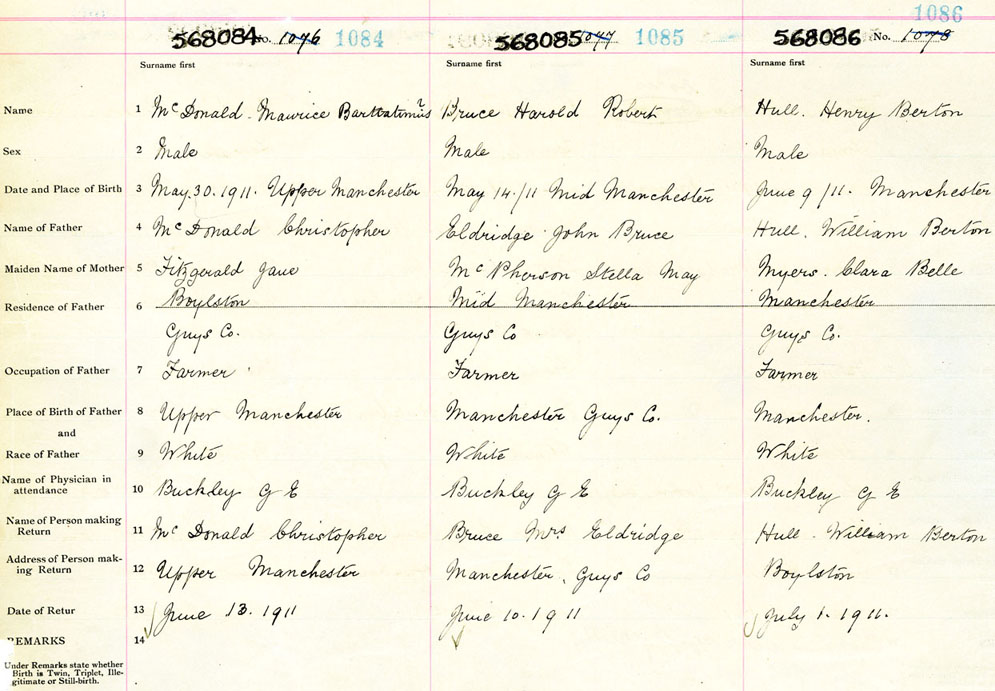 1086
568084 No. 1076 1084 568085 1077 1085 568086 No. 1078
Surname first Surname first Surname first
Name 1 McDonald. Maurice Bartlatimus? Bruce Harold Robert Hull. Henry Berton
Sex 2 Male Male Male
Date and Place of Birth 3 May. 30. 1911. Upper Manchester May 14/11 Mid Manchester June 9/11. Manchester
Name of Father 4 McDonald Christopher Eldridge John Bruce Hull. William Berton
Maiden Name of Mother 5 Fitzgerald Jane McPherson Stella May Myers. Clara Belle
Residence of Father 6 Boylston Mid Manchester Manchester
Guys Co. Guys Co Guys Co.
Occupation of Father 7 Farmer Farmer Farmer
Place of Birth of Father 8 Upper Manchester Manchester Guys Co. Manchester.
and
Race of Father 9 White White White
Name of Physician in
attendance 10 Buckley G E Buckley G E Buckley G E
Name of Person making
Return 11 McDonald Christopher Bruce Mrs Eldridge Hull. William Berton
Address of Person mak-
ing Return 12 Upper Manchester Manchester, Guys Co Boylston
Date of Retur 13 June 13. 1911 June 10. 1911 July 1. 1911.
REMARKS 14
Under Remarks state whether
Birth is Twin, Triplet, Ille-
gitimate or Still-birth.